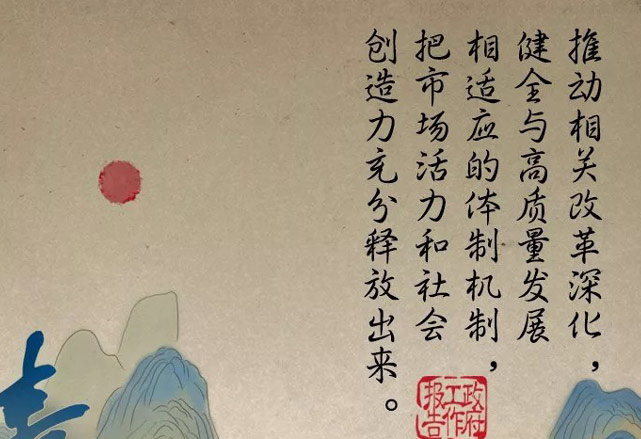 推动相关改革深化，
健全与高质量发展
相适应的体制机制，
把市场活力和社会
创造力充分释放出来。
政府
工作
报告